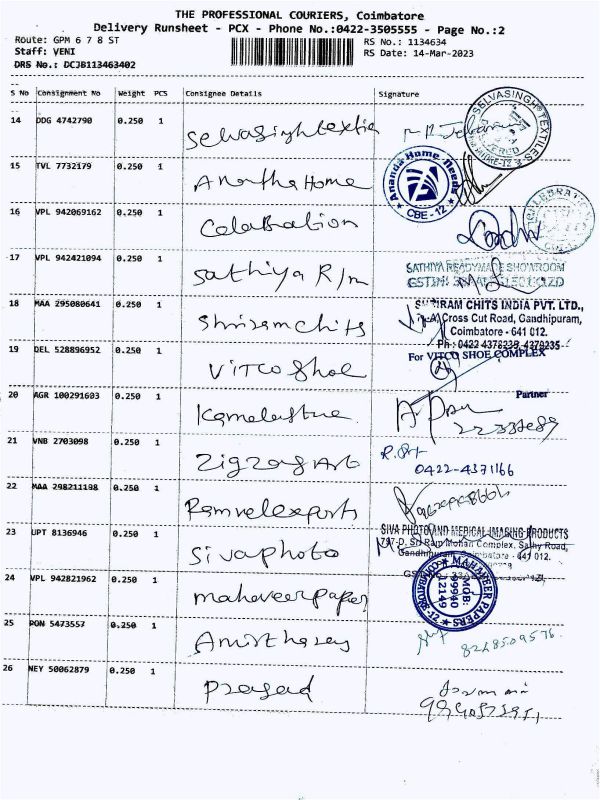 THE PROFESSIONAL COURIERS, Coimbatore
Delivery Runsheet - PCX - Phone No.:0422-3505555 - Page No.:2
Route: GPM 6 7 8 ST RS No.: 1134634
Staff: VENI RS Date: 14-Mar-2023
DRS No.: DCJB113463402
S No Consignment No Weight PCS Consignee Details Signature
14 DDG 4742790 0.250 1 Selvasinghtextie
SELVASINGH TEXTILES
15 TVL 7732179 0.250 1 AnanthaHome
Ananda Home Needs
CBE-12
16 VPL 942069162 0.250 1 Celebration
CELEBRATION
17 VPL 942421094 0.250 1 Sathiya R/m
SATHIYA READYMADE SHOWROOM
18 MAA 295080641 0.250 1 Shriramchits
SHRIRAM CHITS INDIA PVT. LTD.,
Cross Cut Road, Gandhipuram,
Coimbatore - 641 012.
Ph : 0422 4378239, 4379235
19 DEL 528896952 0.250 1 Vitcoshoe
For VITCO SHOE COMPLEX
Partner
20 AGR 100291603 0.250 1
21 VNB 2703098 0.250 1 Zigzag Art
0422-4371166
22 MAA 298211198 0.250 1 Ramvelexports
23 UPT 8136946 0.250 1 Sivaphoto
SIVA PHOTO AND MEDICAL IMAGING PRODUCTS
Sri Ram Mohan Complex, Sathy Road,
Gandhipuram, Coimbatore - 641 012.
24 VPL 942821962 0.250 1 mahaveerpaper
MAHAVEER PAPERS
COIMBATORE-12
MOB:
99940
12149
25 PON 5473557 0.250 1
8248509576.
26 NEY 50062879 0.250 1 Prasad